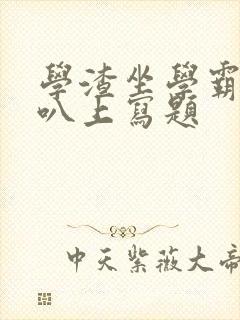 學渣坐學霸
叭上寫題
中天紫薇大帝